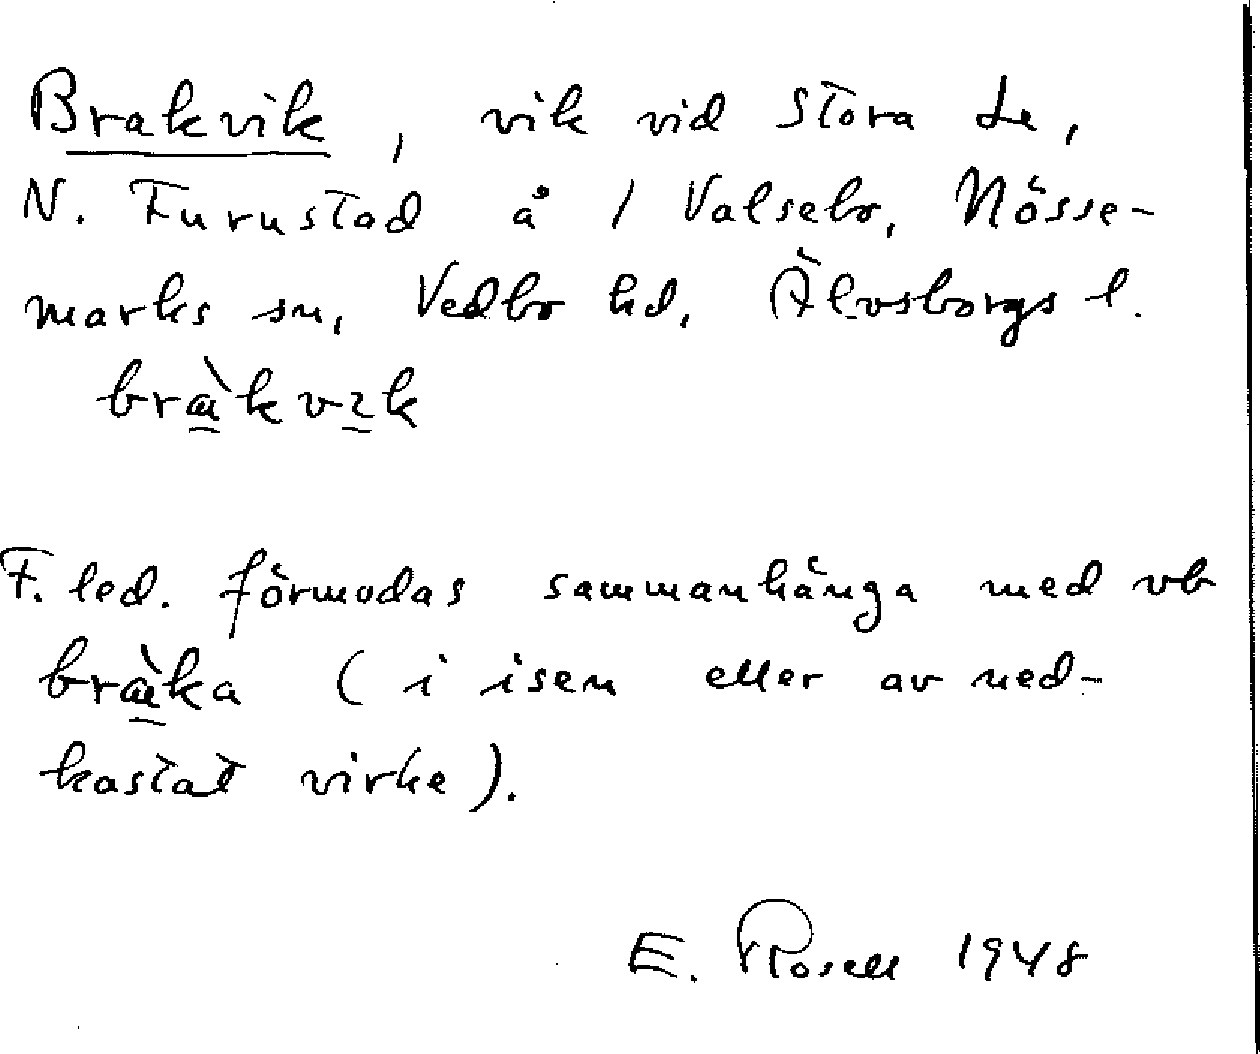 Brakvik, vik vid Stora Le,
N. Furustad å 1 Valsebo, Nösse-
marks sn, Vedbo hd, Älvsborgs l.
bràkvik
F. led. förmodas sammanhänga med vb
bràka (i isen eller av ned-
kastat virke).
E. Rosell 1948